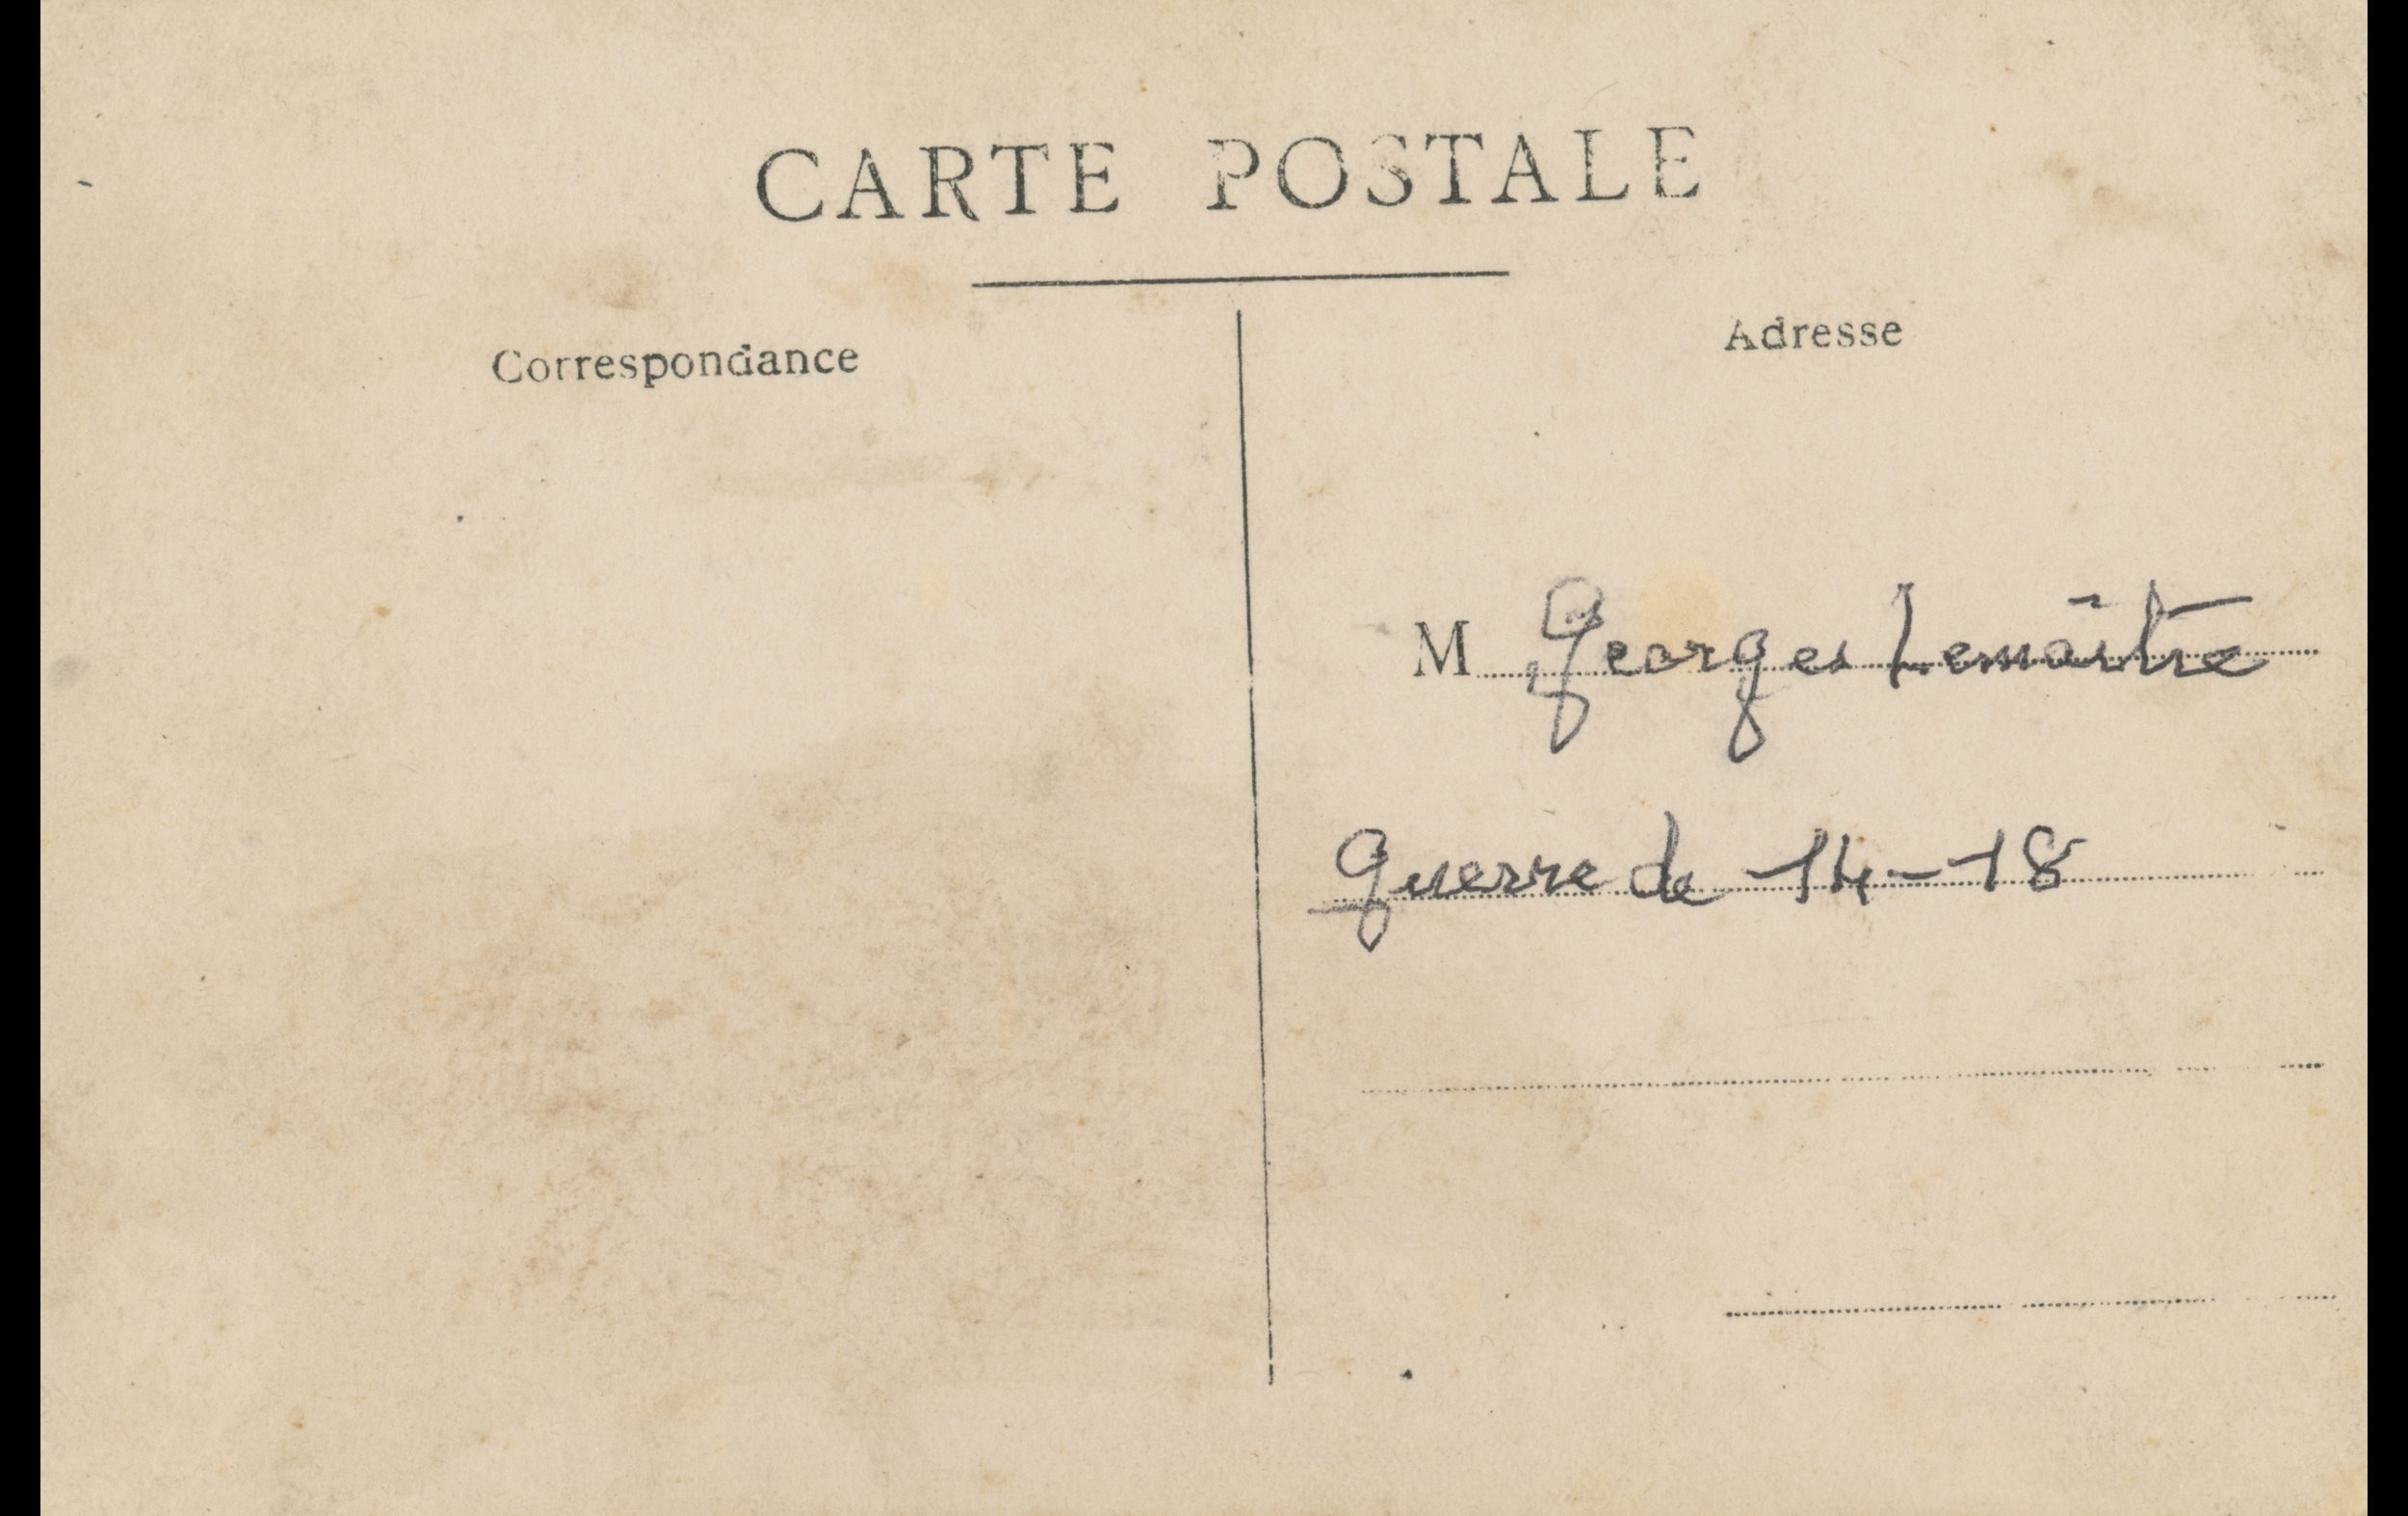 CARTE POSTALE
Correspondance
Adresse
M Georges Lemaître
Guerre de 14-18